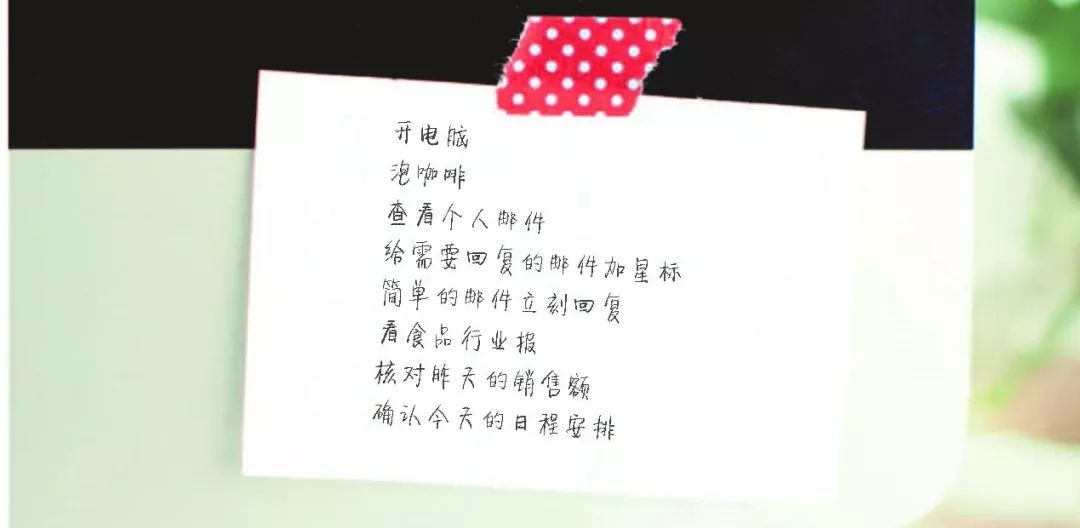 开电脑
泡咖啡
查看个人邮件
给需要回复的邮件加星标
简单的邮件立刻回复
看食品行业报
核对昨天的销售额
确认今天的日程安排